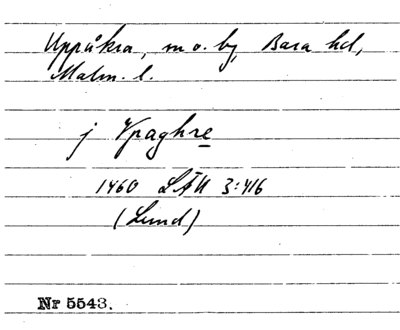 Uppåkra, sn o. by, Bara hd,
Malm. l.
j Vpaghre
1460 LÄU 3:416
(Lund)
Nr 5543.